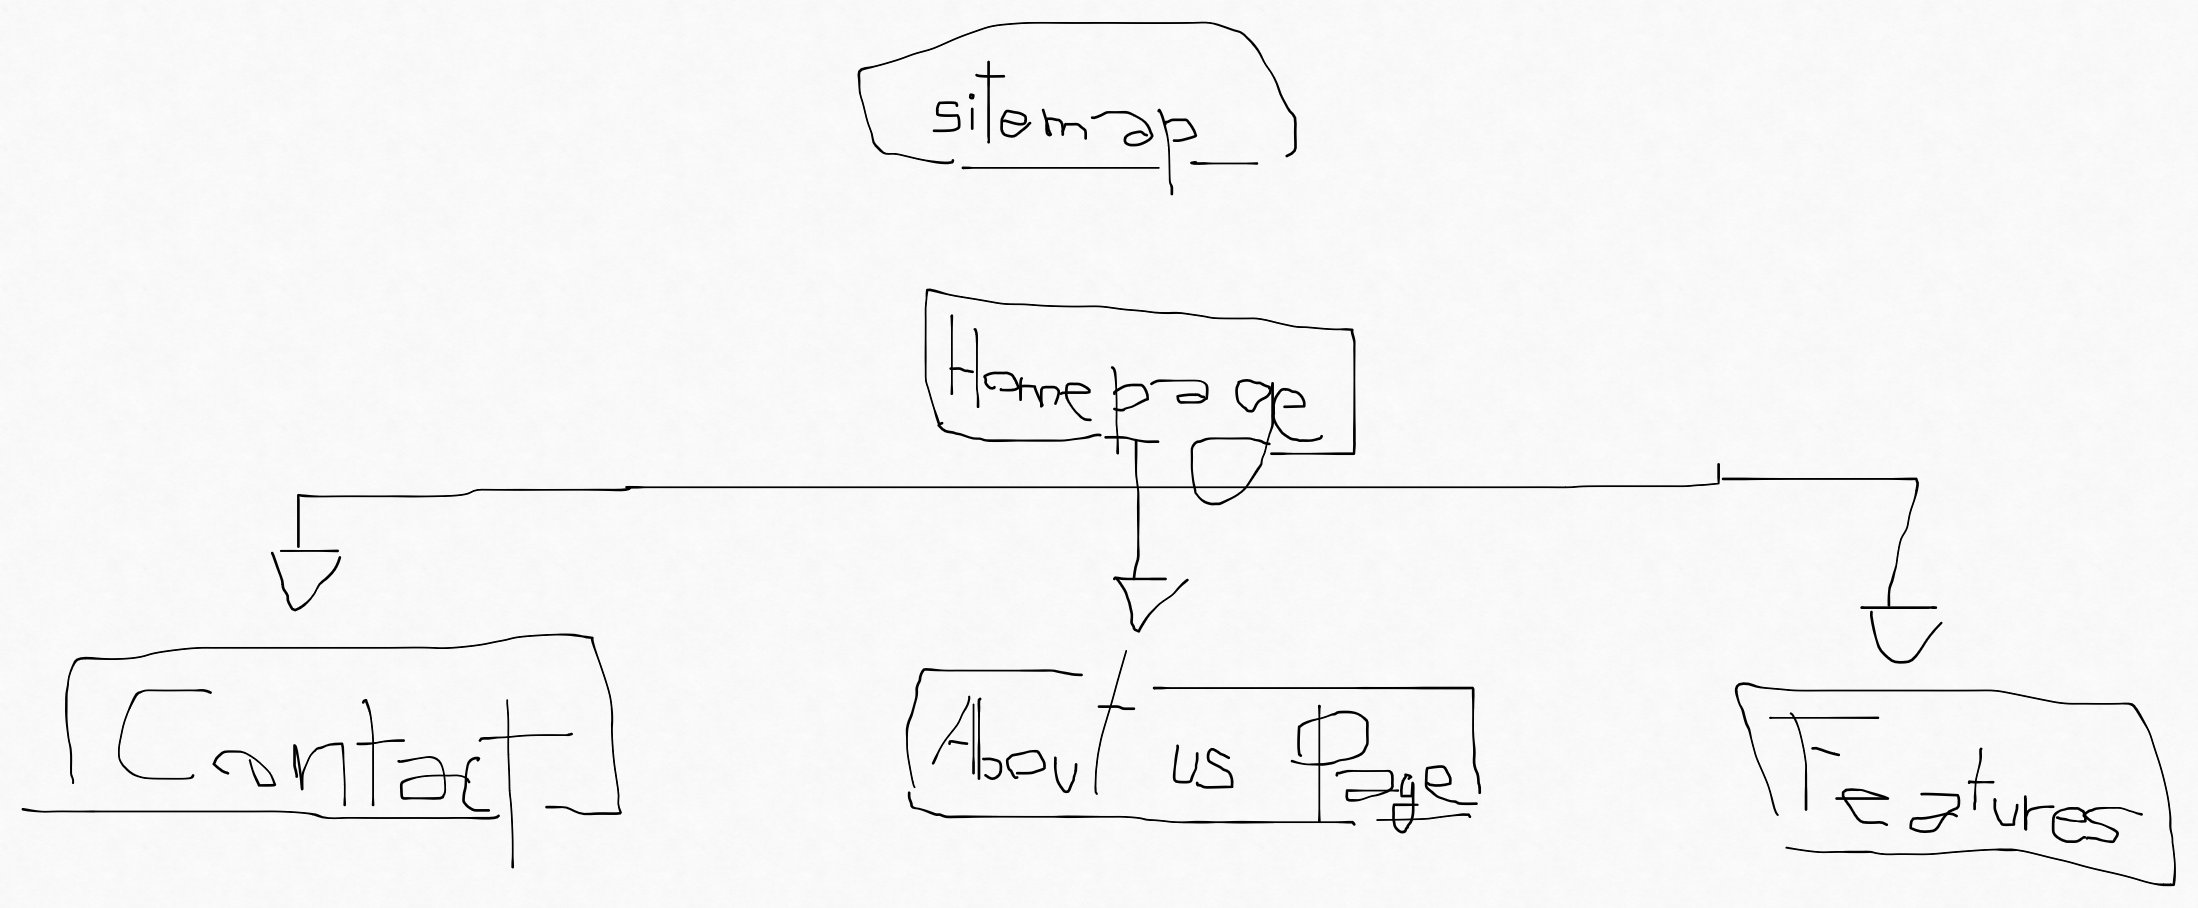 sitemap
Homepage
Contact
About us Page
Features